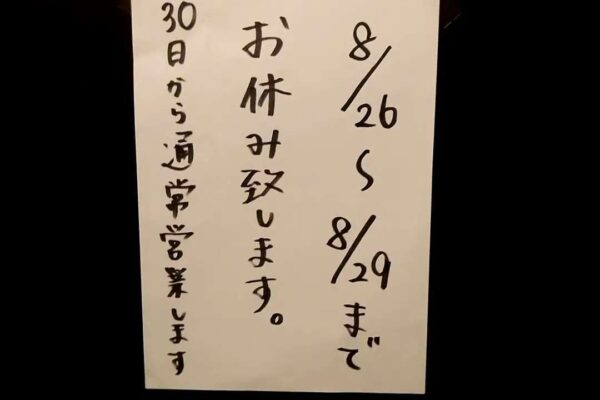 8/26〜8/29まで
お休み致します。
30日から通常営業します